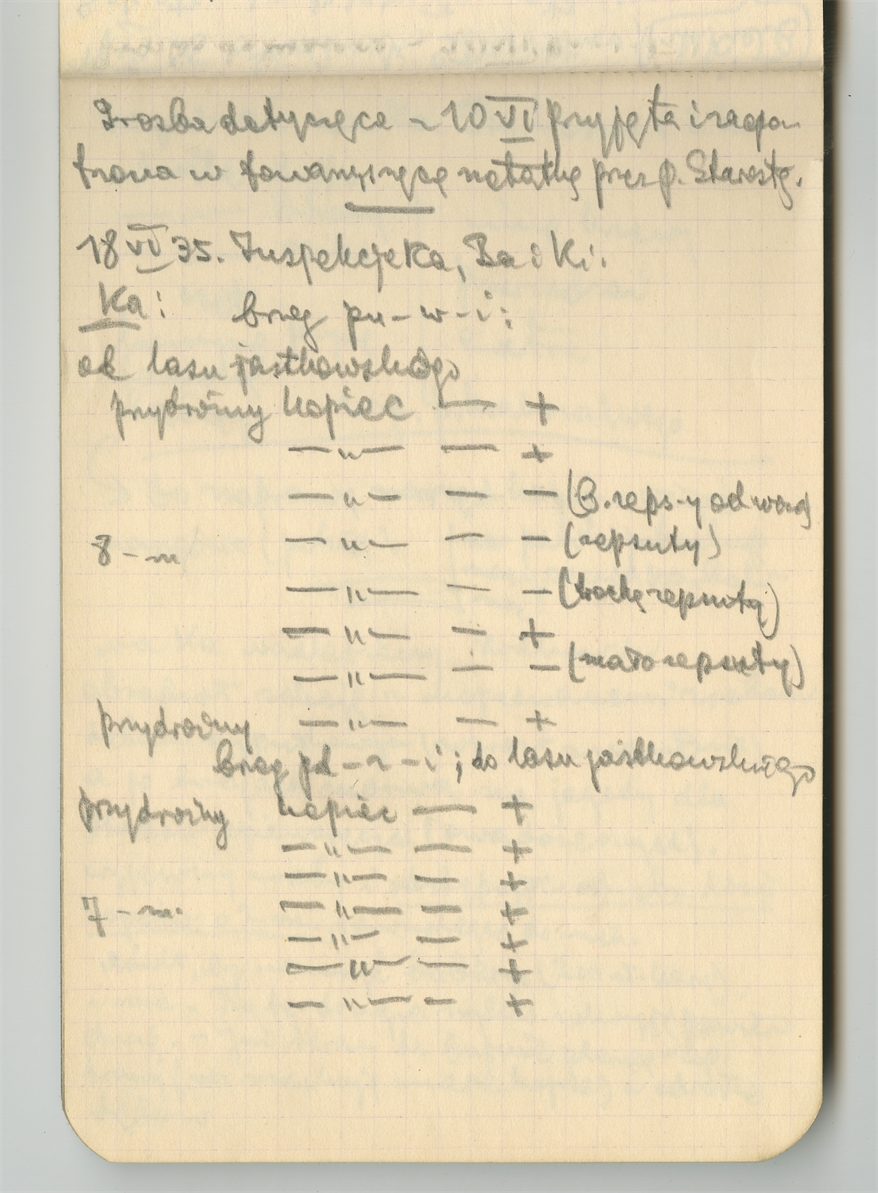 Prośba dotycząca – 10 VI przyjęta i zaopa-
trzona w towarzyszącą notatkę przez p. Starostę.
18 VI 35. Inspekcje Ka, Ba i Ki.
Ka: brzeg pn – w – i:
od lasu jastkowskiego
przydrożny kopiec — +
— " — — +
— " — — — (B. zeps-y od wody)
8 – m — " — — — (zepsuty)
— " — — — (trochę zepsuty)
— " — — +
— " — — — (mało zepsuty)
przydrożny — " — — +
brzeg pd – z – i; do lasu jastkowskiego
przydrożny kopiec — +
— " — — +
— " — — +
7 – m. — " — — +
— " — — +
— " — — +
— " — — +